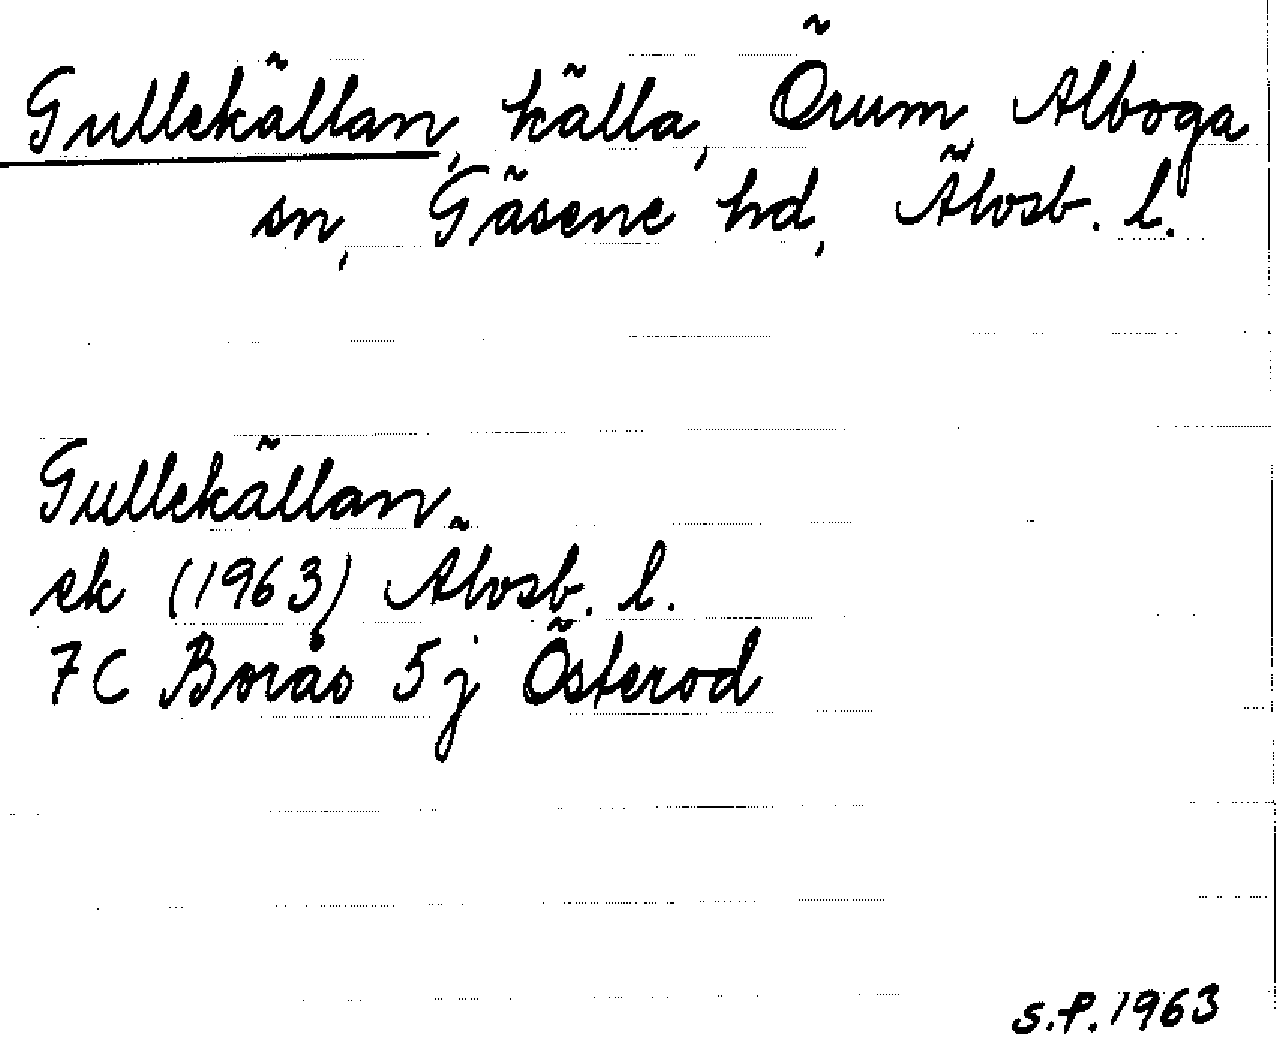 Gullekällan, källa, Örum, Alboga
sn, Gäsene hd, Älvsb. l.
Gullekällan
ek (1963) Älvsb. l.
7C Borås 5j Österod
S.F. 1963